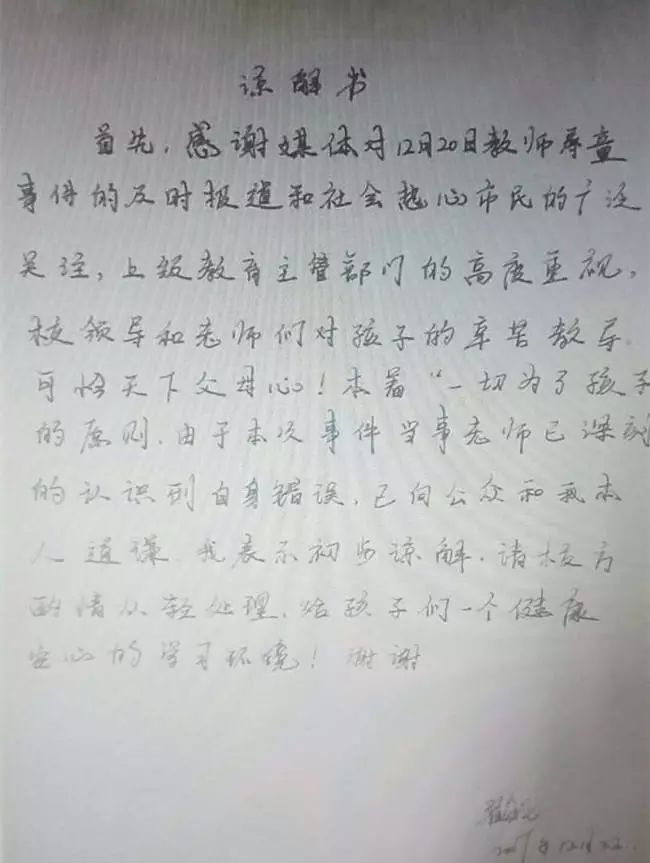 谅解书
首先,感谢媒体对12月20日教师辱童
事件的及时报道和社会热心市民的广泛
关注,上级教育主管部门的高度重视,
校领导和老师们对孩子的辛苦教导.
可怜天下父母心!本着“一切为了孩子
的原则.由于本次事件当事老师已深刻
的认识到自身错误,已向公众和我本
人道谦.我表示初步谅解.请校方
酌情从轻处理.给孩子们一个健康
安心的学习环境!谢谢
2017年12月22